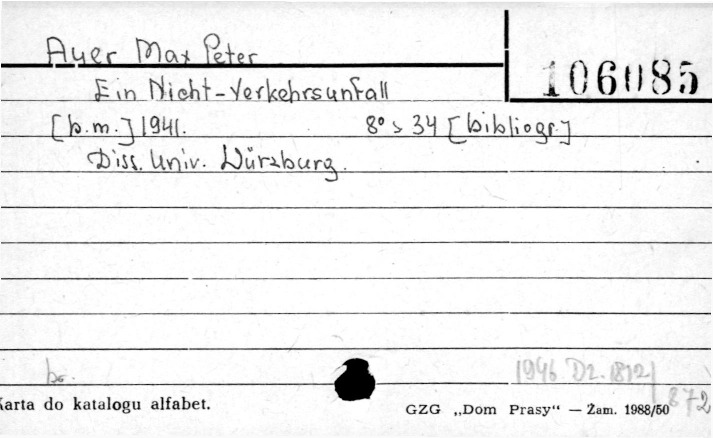 Ayer Max Peter
106085
Ein Nicht-Verkehrsunfall
[b.m.] 1941. 8° s 34 [bibliogr.]
Diss. Univ. Würzburg.
br.
1946. Dz. 1812/
872
Karta do katalogu alfabet.
GZG „Dom Prasy“ — Żam. 1988/50